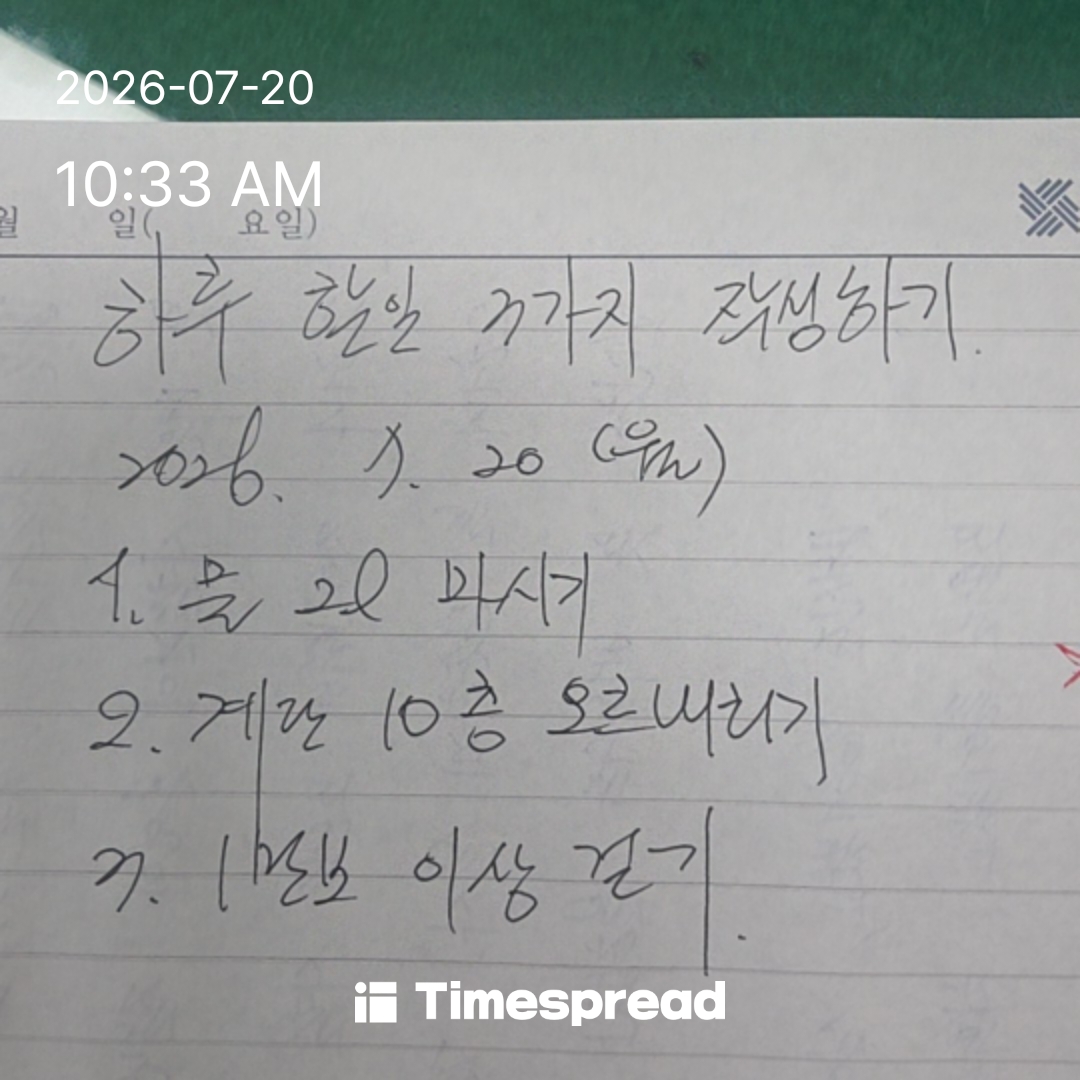 2026-07-20
10:33 AM
월 일( 요일)
하루 할일 3가지 작성하기.
2026. 7. 20 (월)
1. 물 2l 마시기
2. 계단 10층 오르내리기
3. 1만보 이상 걷기.
Timespread